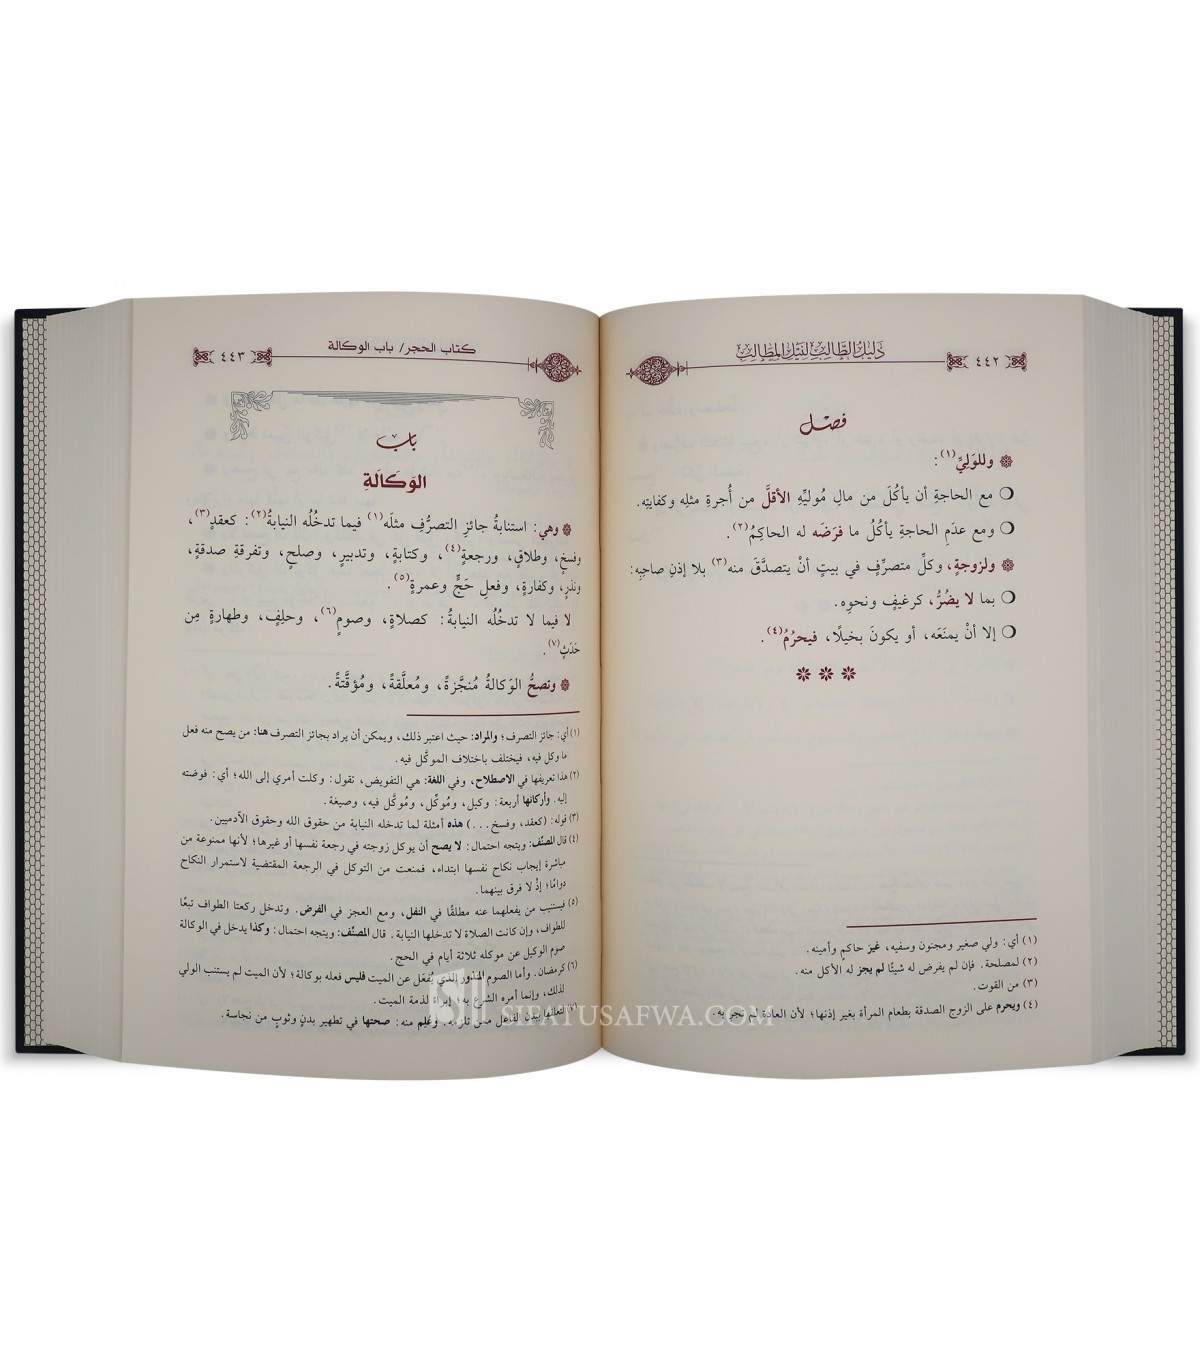 ٤٤٢
دليل الطالب لنيل المطالب
فصل
وللوَلِيِّ(١):
مع الحاجةِ أن يأكُلَ من مالِ مُوليِّهِ الأقلَّ من أُجرةِ مثلِه وكفايتِه.
ومع عدَمِ الحاجةِ يأكُلُ ما فرَضَه له الحاكِمُ(٢).
ولزوجةٍ، وكلِّ متصرِّفٍ في بيتٍ أنْ يتصدَّقَ منه(٣) بلا إذنِ صاحبِه:
بما لا يضُرُّ، كرغيفٍ ونحوِه.
إلا أنْ يمنَعَه، أو يكونَ بخيلًا، فيحرُمُ(٤).
(١) أي: ولي صغير ومجنون وسفيه، غيرَ حاكمٍ وأمينه.
(٢) لمصلحة. فإن لم يفرض له شيئًا لم يجز له الأكل منه.
(٣) من القوت.
(٤) ويحرم على الزوج الصدقة بطعام المرأة بغير إذنها؛ لأن العادة لم تجرِ به.
كتاب الحجر/ باب الوكالة
٤٤٣
باب
الوَكَالَةِ
وهي: استنابةُ جائزِ التصرُّفِ مثلَه(١) فيما تدخُلُه النيابةُ(٢): كعقدٍ(٣)،
وفسخٍ، وطلاقٍ، ورجعةٍ(٤)، وكتابةٍ، وتدبيرٍ، وصلحٍ، وتفرقةِ صدقةٍ،
ونذرٍ، وكفارةٍ، وفعلِ حَجٍّ وعمرةٍ(٥).
لا فيما لا تدخُلُه النيابةُ: كصلاةٍ، وصومٍ(٦)، وحلِفٍ، وطهارةٍ مِن
حَدَثٍ(٧).
وتصحُّ الوَكالةُ مُنجَّزةً، ومُعلَّقةً، ومُؤقَّتةً.
(١) أي: جائز التصرف؛ والمراد: حيث اعتبر ذلك، ويمكن أن يراد بجائز التصرف هنا: من يصح منه فعل
ما وكل فيه، فيختلف باختلاف الموكَّل فيه.
(٢) هذا تعريفها في الاصطلاح، وفي اللغة: هي التفويض، تقول: وكلت أمري إلى الله؛ أي: فوضته
إليه. وأركانها أربعة: وكيل، ومُوكِّل، ومُوكَّل فيه، وصيغة.
(٣) قوله: (كعقد، وفسخ...) هذه أمثلة لما تدخله النيابة من حقوق الله وحقوق الآدميين.
(٤) قال المصنِّف: ويتجه احتمال: لا يصح أن يوكل زوجته في رجعة نفسها أو غيرها؛ لأنها ممنوعة من
مباشرة إيجاب نكاح نفسها ابتداء، فمنعت من التوكل في الرجعة المقتضية لاستمرار النكاح
دوامًا؛ إذْ لا فرق بينهما.
(٥) فيستنب من يفعلهما عنه مطلقًا في النفل، ومع العجز في الفرض. وتدخل ركعتا الطواف تبعًا
للطواف، وإن كانت الصلاة لا تدخلها النيابة. قال المصنِّف: ويتجه احتمال: وكذا يدخل في الوكالة
صوم الوكيل عن موكله ثلاثة أيام في الحج.
(٦) كرمضان. وأما الصوم المنذور الذي يُفعَل عن الميت فليس فعله بوكالة؛ لأن الميت لم يستنب الولي
لذلك، وإنما أمره الشرع به؛ إبراءً لذمة الميت.
(٧) لتعلقها ببدن الفاعل وعُلم منه: صحتها في تطهير بدنٍ وثوبٍ من نجاسة.
SIFATUSAFWA.COM